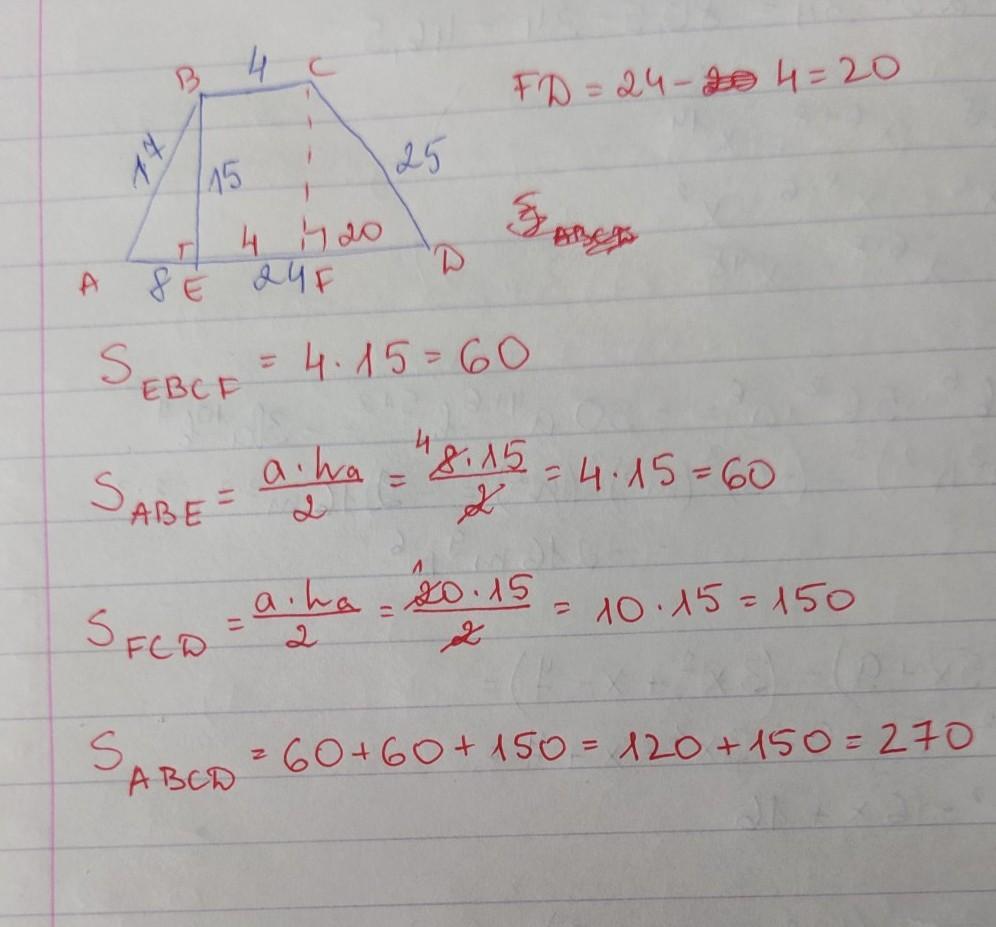 B 4 C
FD = 24 - 4 = 20
17
15
25
4
20
A
8
E
24
F
D
S ABCD
S EBCF = 4 · 15 = 60
S ABE = a · ha / 2 = 4 8 · 15 / 2 = 4 · 15 = 60
S FCD = a · ha / 2 = 1 20 · 15 / 2 = 10 · 15 = 150
S ABCD = 60 + 60 + 150 = 120 + 150 = 270